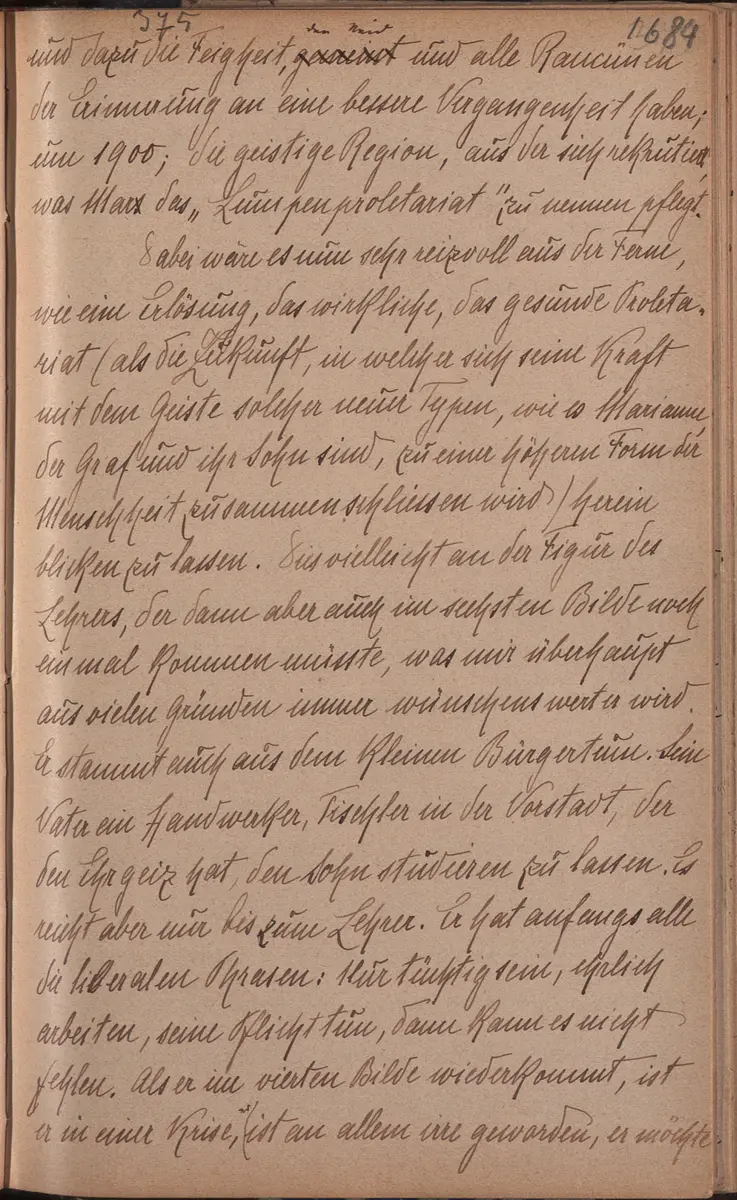 375
1684
den Neid
und dazu die Feigheit, gemeint und alle Rancünen
der Erinnerung an eine bessere Vergangenheit haben;
um 1900; die geistige Region, aus der sich rekrutiert,
was Marx das „Lumpenproletariat" zu nennen pflegt.
Dabei wäre es nun sehr reizvoll aus der Ferne,
wie eine Erlösung, das wirkliche, das gesunde Proleta-
riat (als die Zukunft, in welcher sich seine Kraft
mit dem Geiste solcher neuer Typen, wie es Marianne,
der Graf und ihr Sohn sind, zu einer höheren Form der
Menschheit zusammenschliessen wird) herein
blicken zu lassen. Dies vielleicht an der Figur des
Lehrers, der dann aber auch im sechsten Bilde noch
einmal kommen müsste, was mir überhaupt
aus vielen Gründen immer wünschenswerter wird.
Er stammt auch aus dem kleinen Bürgertum. Sein
Vater ein Handwerker, Tischler in der Vorstadt, der
den Ehrgeiz hat, den Sohn studieren zu lassen. Es
reicht aber nur bis zum Lehrer. Er hat anfangs alle
die liberalen Phrasen: Nur tüchtig sein, ehrlich
arbeiten, seine Pflicht tun, dann kann es nicht
fehlen. Als er im vierten Bilde wiederkommt, ist
er in einer Krise, ist an allem irre geworden, er möchte